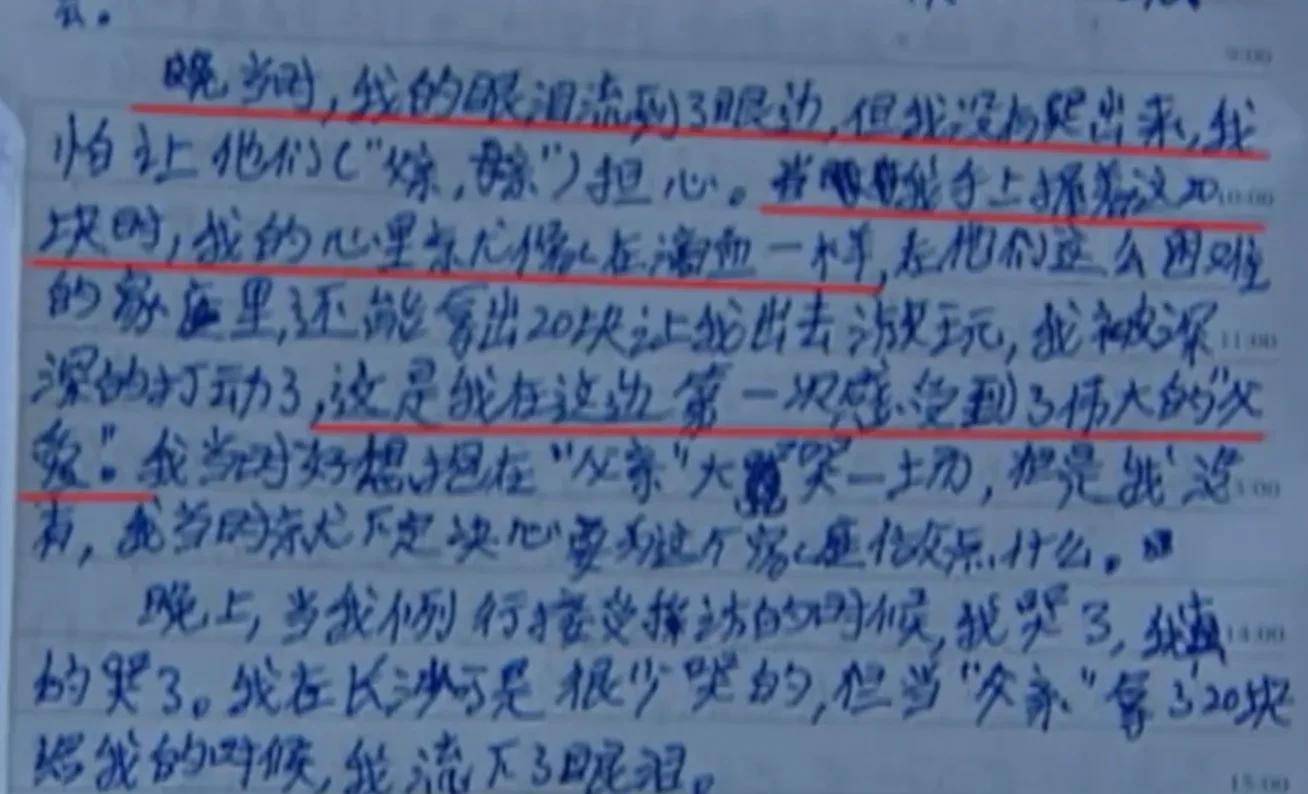 去。
9:00
晚当时,我的眼泪流到了眼边,但我没有哭出来,我
怕让他们("嫁,嫁")担心。当我手上握着这20 10:00
块时,我的心里就像在滴血一样,在他们这么困难
的家庭里,还能拿出20块让我出去游玩,我被深 11:00
深的打动了,这是我在这边第一次感受到了伟大的"父
爱"。我当时好想抱在"父亲"大哭一场,但是我没
有,我当时就下定决心要为这个家庭付出点什么。
晚上,当我例行接受採访的时候,我哭了,我真 14:00
的哭了。我在长沙可是很少哭的,但当"父亲"拿了20块
给我的时候,我流下了眼泪。
15:00